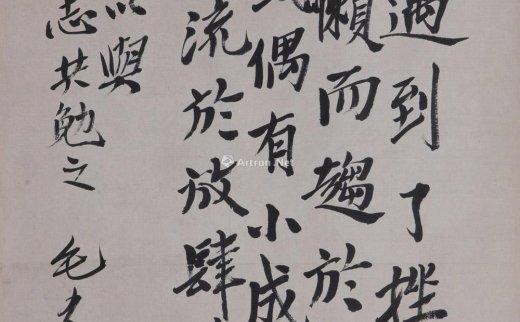 遇到了挫
懶而趨於
偶有小成
流於放肆
以與
志共勉之 毛
Artron.Net